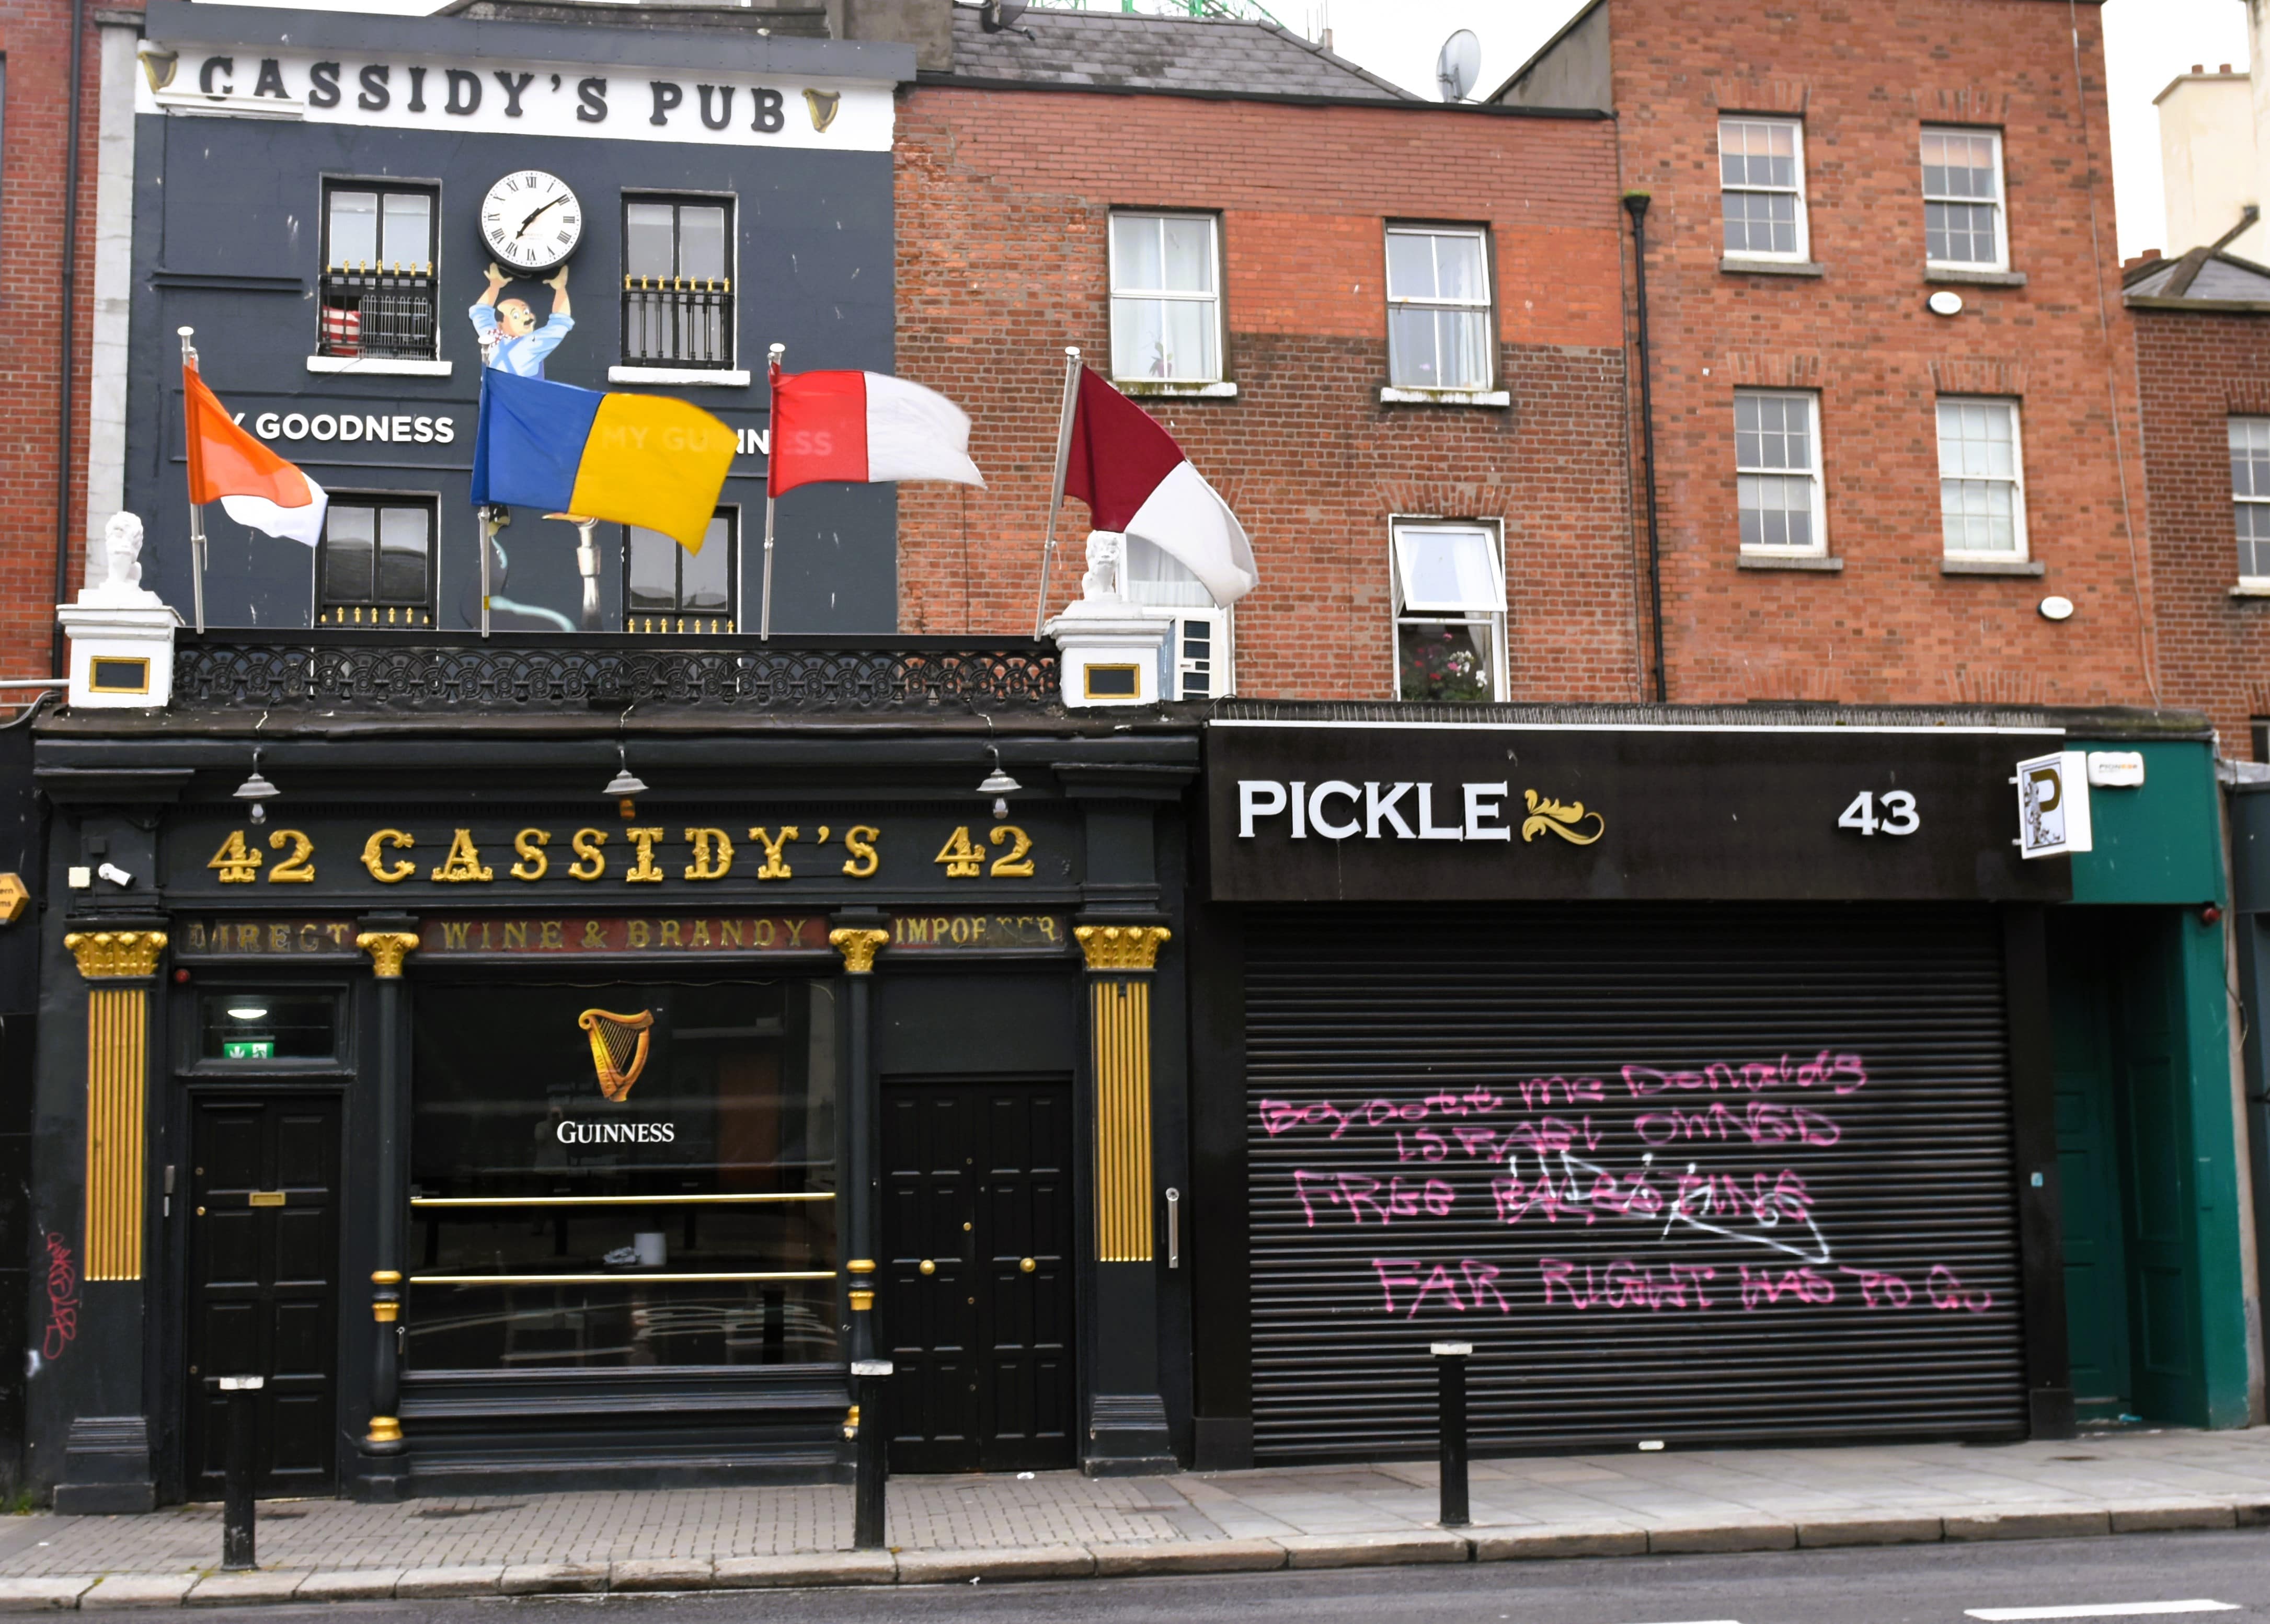 CASSIDY'S PUB
XII I II III IIII V VI VII VIII IX X XI
Y GOODNESS
MY GUINNESS
42 CASSIDY'S 42
DIRECT WINE & BRANDY IMPORTER
GUINNESS
PICKLE 43
P
Boycott Mc Donalds
ISRAEL OWNED
FREE PALESTINE
FAR RIGHT HAS TO GO